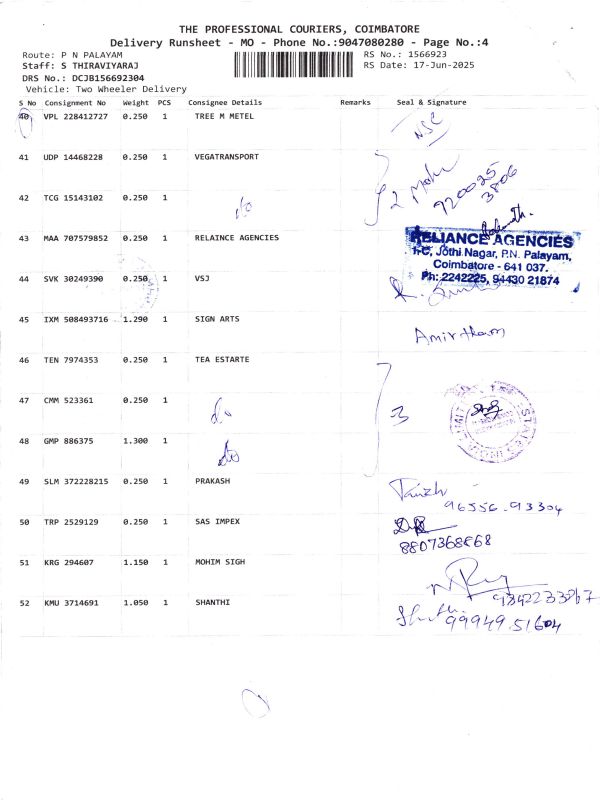 THE PROFESSIONAL COURIERS, COIMBATORE
Delivery Runsheet - MO - Phone No.:9047080280 - Page No.:4
Route: P N PALAYAM RS No.: 1566923
Staff: S THIRAVIYARAJ RS Date: 17-Jun-2025
DRS No.: DCJB156692304
Vehicle: Two Wheeler Delivery
S No Consignment No Weight PCS Consignee Details Remarks Seal & Signature
40 VPL 228412727 0.250 1 TREE M METEL
NSC
41 UDP 14468228 0.250 1 VEGATRANSPORT
2
920025
3806
42 TCG 15143102 0.250 1 do
43 MAA 707579852 0.250 1 RELAINCE AGENCIES
RELIANCE AGENCIES
1-C, Jothi Nagar, P.N. Palayam,
Coimbatore - 641 037.
Ph: 2242225, 94430 21874
44 SVK 30249390 0.250 1 VSJ
45 IXM 508493716 1.290 1 SIGN ARTS
Amirtham
46 TEN 7974353 0.250 1 TEA ESTARTE
47 CMM 523361 0.250 1 do
3
48 GMP 886375 1.300 1 do
49 SLM 372228215 0.250 1 PRAKASH
96556.93304
50 TRP 2529129 0.250 1 SAS IMPEX
8807368868
51 KRG 294607 1.150 1 MOHIM SIGH
52 KMU 3714691 1.050 1 SHANTHI
99949.51604